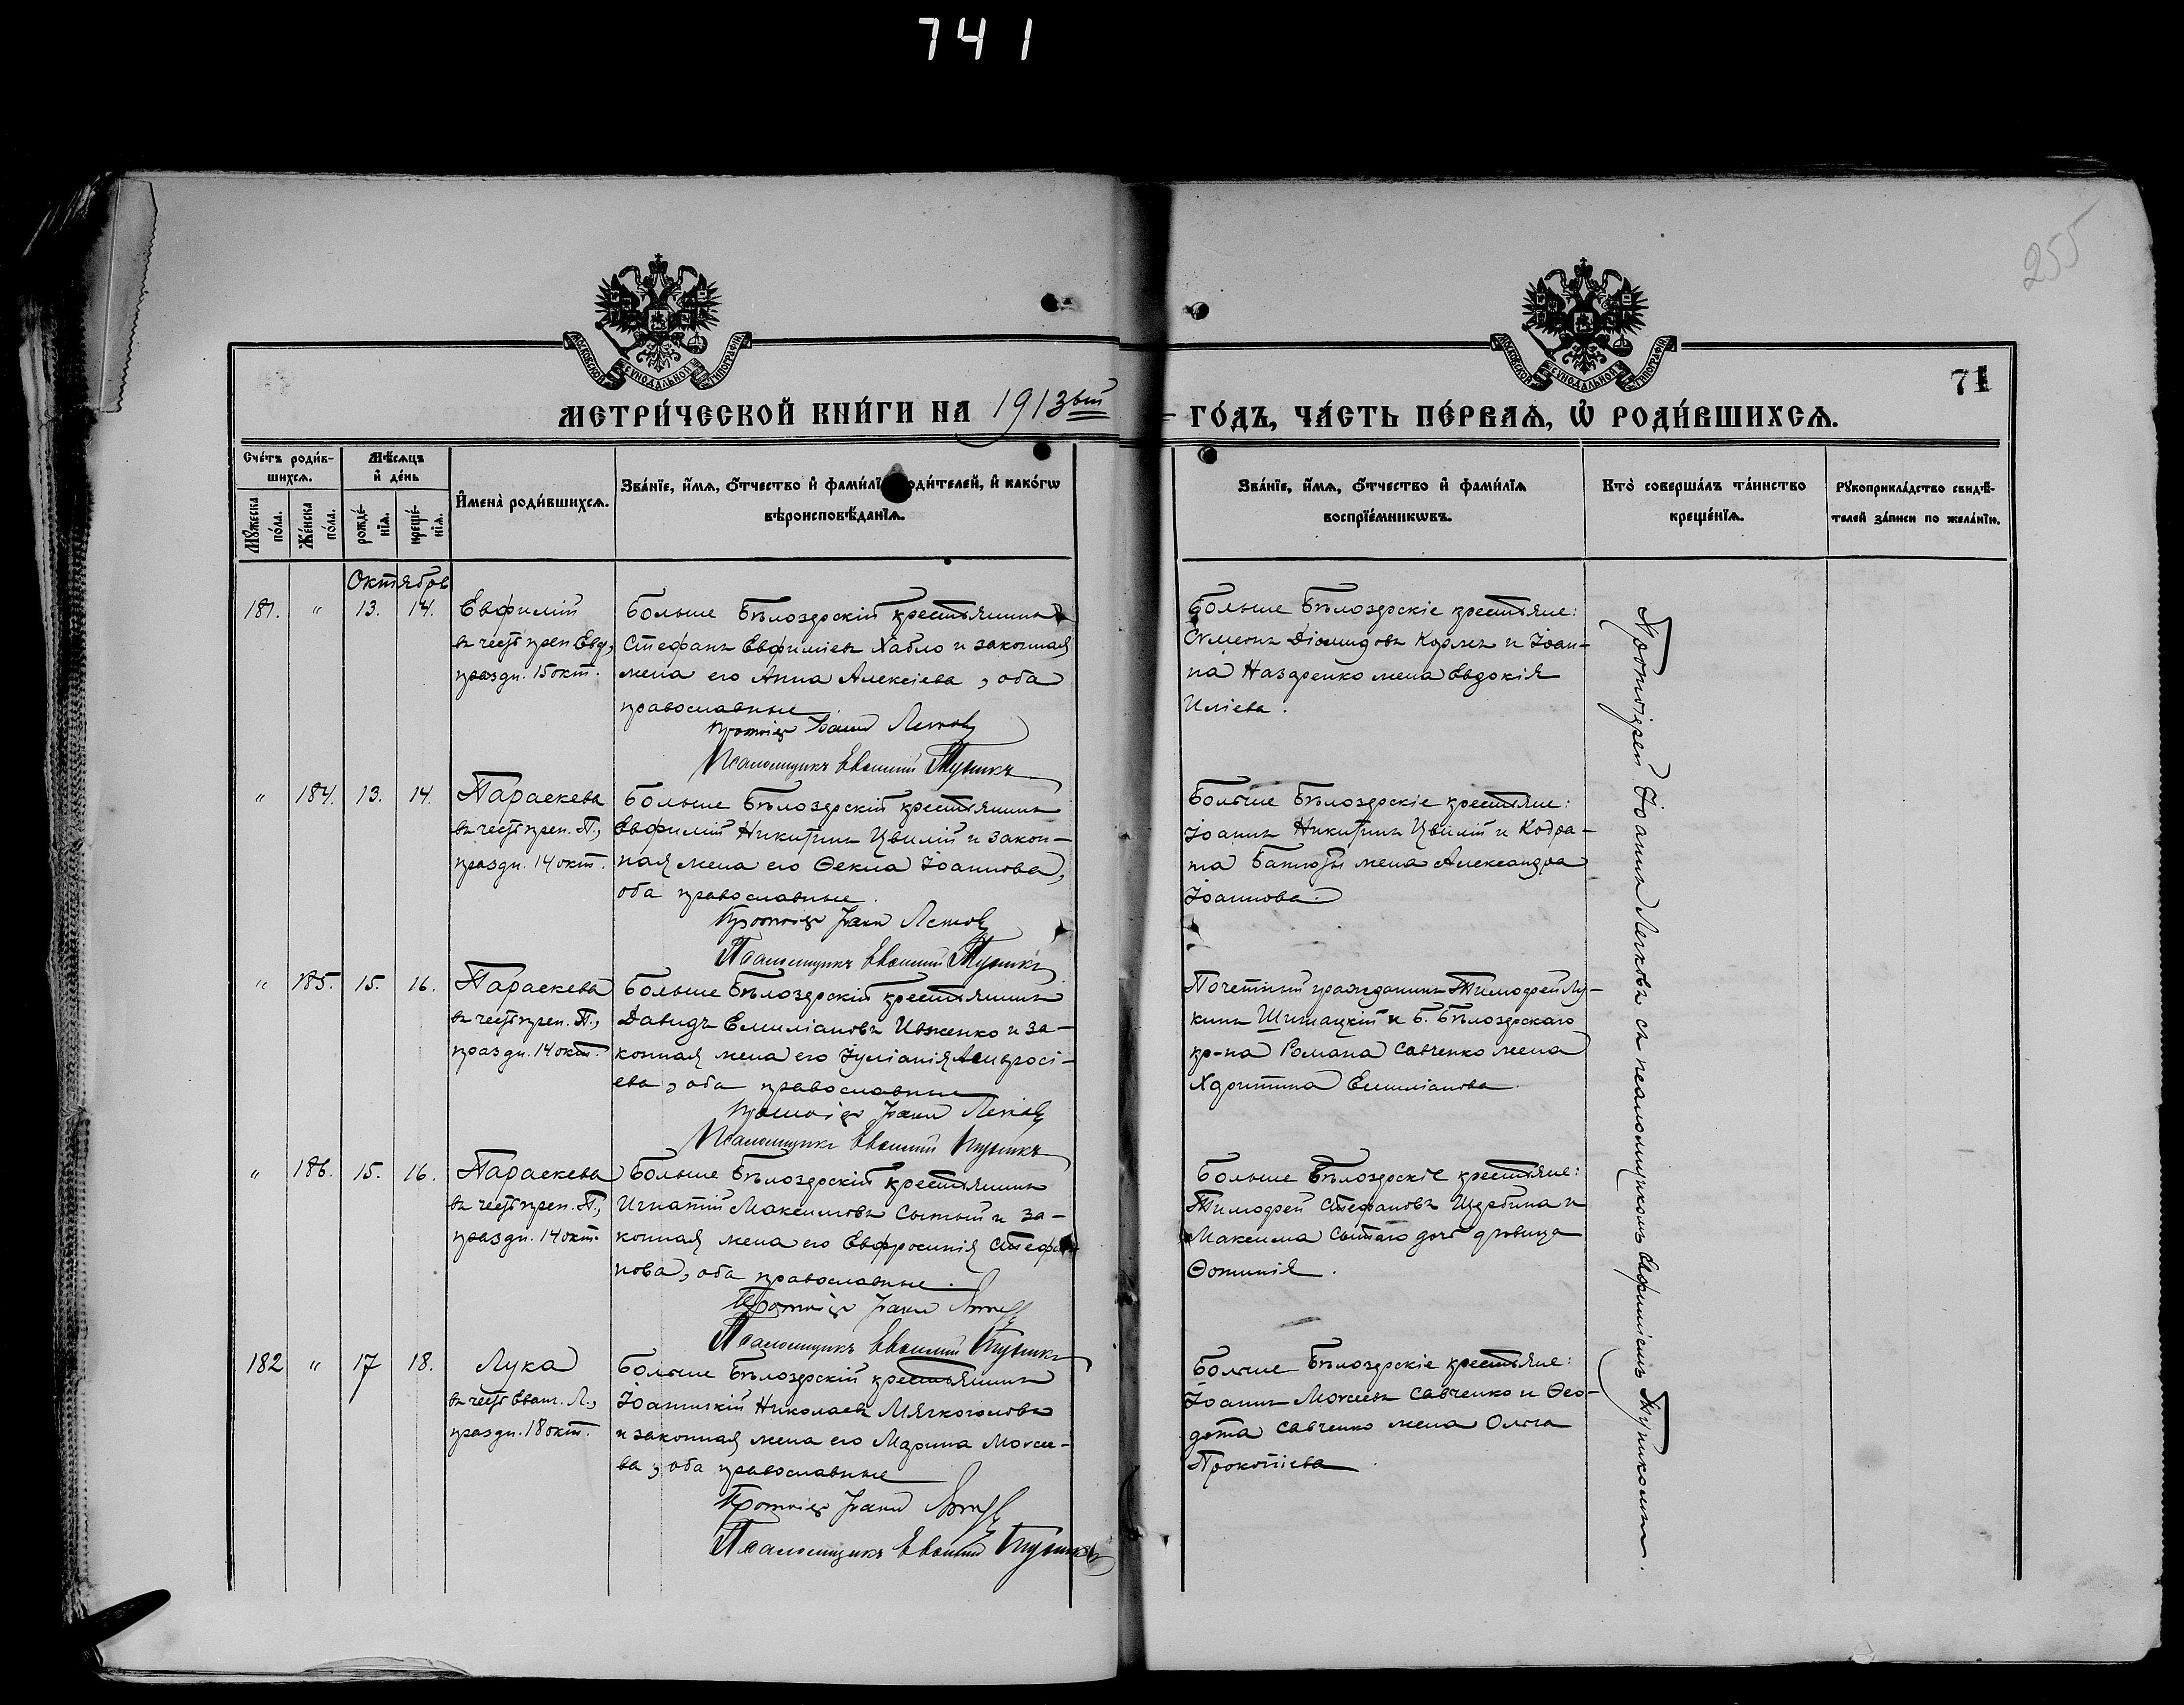 741
255
МОСКОВСКОЙ СѴНОДАЛЬНОЙ ТИПОГРАФІИ
МОСКОВСКОЙ СѴНОДАЛЬНОЙ ТИПОГРАФІИ
71
МЕТРИ́ЧЕСКОЙ КНИ́ГИ НА 1913ый ГО́ДЪ, ЧА́СТЬ ПЕ́РВАѦ, Ѡ҆ РОДИ́ВШИХСѦ.
Сче́тъ роди́в-
шихсѧ.
Мꙋ́жеска
по́ла.
Же́нска
по́ла.
Мѣ́сѧцъ
и҆ де́нь
рожде́-
нїѧ.
креще́-
нїѧ.
И҆мена̀ роди́вшихсѧ.
Зва́нїе, и҆́мѧ, ѻ҆́тчество и҆ фами́лїѧ роди́телей, и҆ како́гѡ
вѣроисповѣ́данїѧ.
Зва́нїе, и҆́мѧ, ѻ҆́тчество и҆ фами́лїѧ
воспрїе́мникѡвъ.
Кто̀ соверша́лъ та́инство
креще́нїѧ.
Рꙋкоприкла́дство свидѣ́-
телей за́писи по жела́нїю.
Октябрь
181. " 13. 14.
Евфимій
въ честь преп. Евф.,
праздн. 15 окт.
Больше Бѣлозерскій крестьянинъ
Стефанъ Евфиміевъ Хабло и законная
жена его Анна Алексіева, оба
православные
Протоіер Іоаннъ Легковъ
Псаломщикъ Евфимій Тупикъ
Больше Бѣлозерскіе крестьяне:
Сѵмеонъ Діомидовъ Коржъ и Іоан-
на Назаренко жена Евдокія
Иліева.
" 184. 13. 14.
Параскева
въ честь преп. П.,
праздн. 14 окт.
Больше Бѣлозерскій крестьянинъ
Евфимій Никитинъ Цвилій и закон-
ная жена его Ѳекла Іоаннова,
оба православные.
Протоіер Іоаннъ Легковъ
Псаломщикъ Евфимій Тупикъ
Больше Бѣлозерскіе крестьяне:
Іоаннъ Никитинъ Цвилій и Кодра-
та жена Александра
Іоаннова.
" 185. 15. 16.
Параскева
въ честь преп. П.,
праздн. 14 окт.
Больше Бѣлозерскій крестьянинъ
Давидъ Емиліановъ Ивженко и за-
конная жена его Іуліанія Амвросі-
ева, оба православные
Протоіер Іоаннъ Легковъ
Псаломщикъ Евфимій Тупикъ
Почетный гражданинъ Тимофей Лу-
кинъ Шишацкій и Б. Бѣлозерскаго
кр-на Романа Савченко жена
Хритина Емиліанова.
" 186. 15. 16.
Параскева
въ честь преп. П.,
праздн. 14 окт.
Больше Бѣлозерскій крестьянинъ
Игнатій Максимовъ Сытый и за-
конная жена его Евфросинія Стефа-
нова, оба православные.
Протоіер Іоаннъ Легковъ
Псаломщикъ Евфимій Тупикъ
Больше Бѣлозерскіе крестьяне:
Тимофей Стефановъ Щербина и
Максима Сытаго дочь дѣвица
Ѳотинія.
182 " 17 18.
Лука
въ честь Еванг. Л.,
праздн. 18 окт.
Больше Бѣлозерскій крестьянинъ
Іоанникій Николаевъ Мягкоголовъ
и законная жена его Марина Моѵсее-
ва, оба православные
Протоіер Іоаннъ Легковъ
Псаломщикъ Евфимій Тупикъ
Больше Бѣлозерскіе крестьяне:
Іоаннъ Моѵсеевъ Савченко и Ѳео-
дота Савченко жена Ольга
Прокопіева.
Протоіерей Іоаннъ Легковъ съ псаломщикомъ Евфиміемъ Тупикомъ.